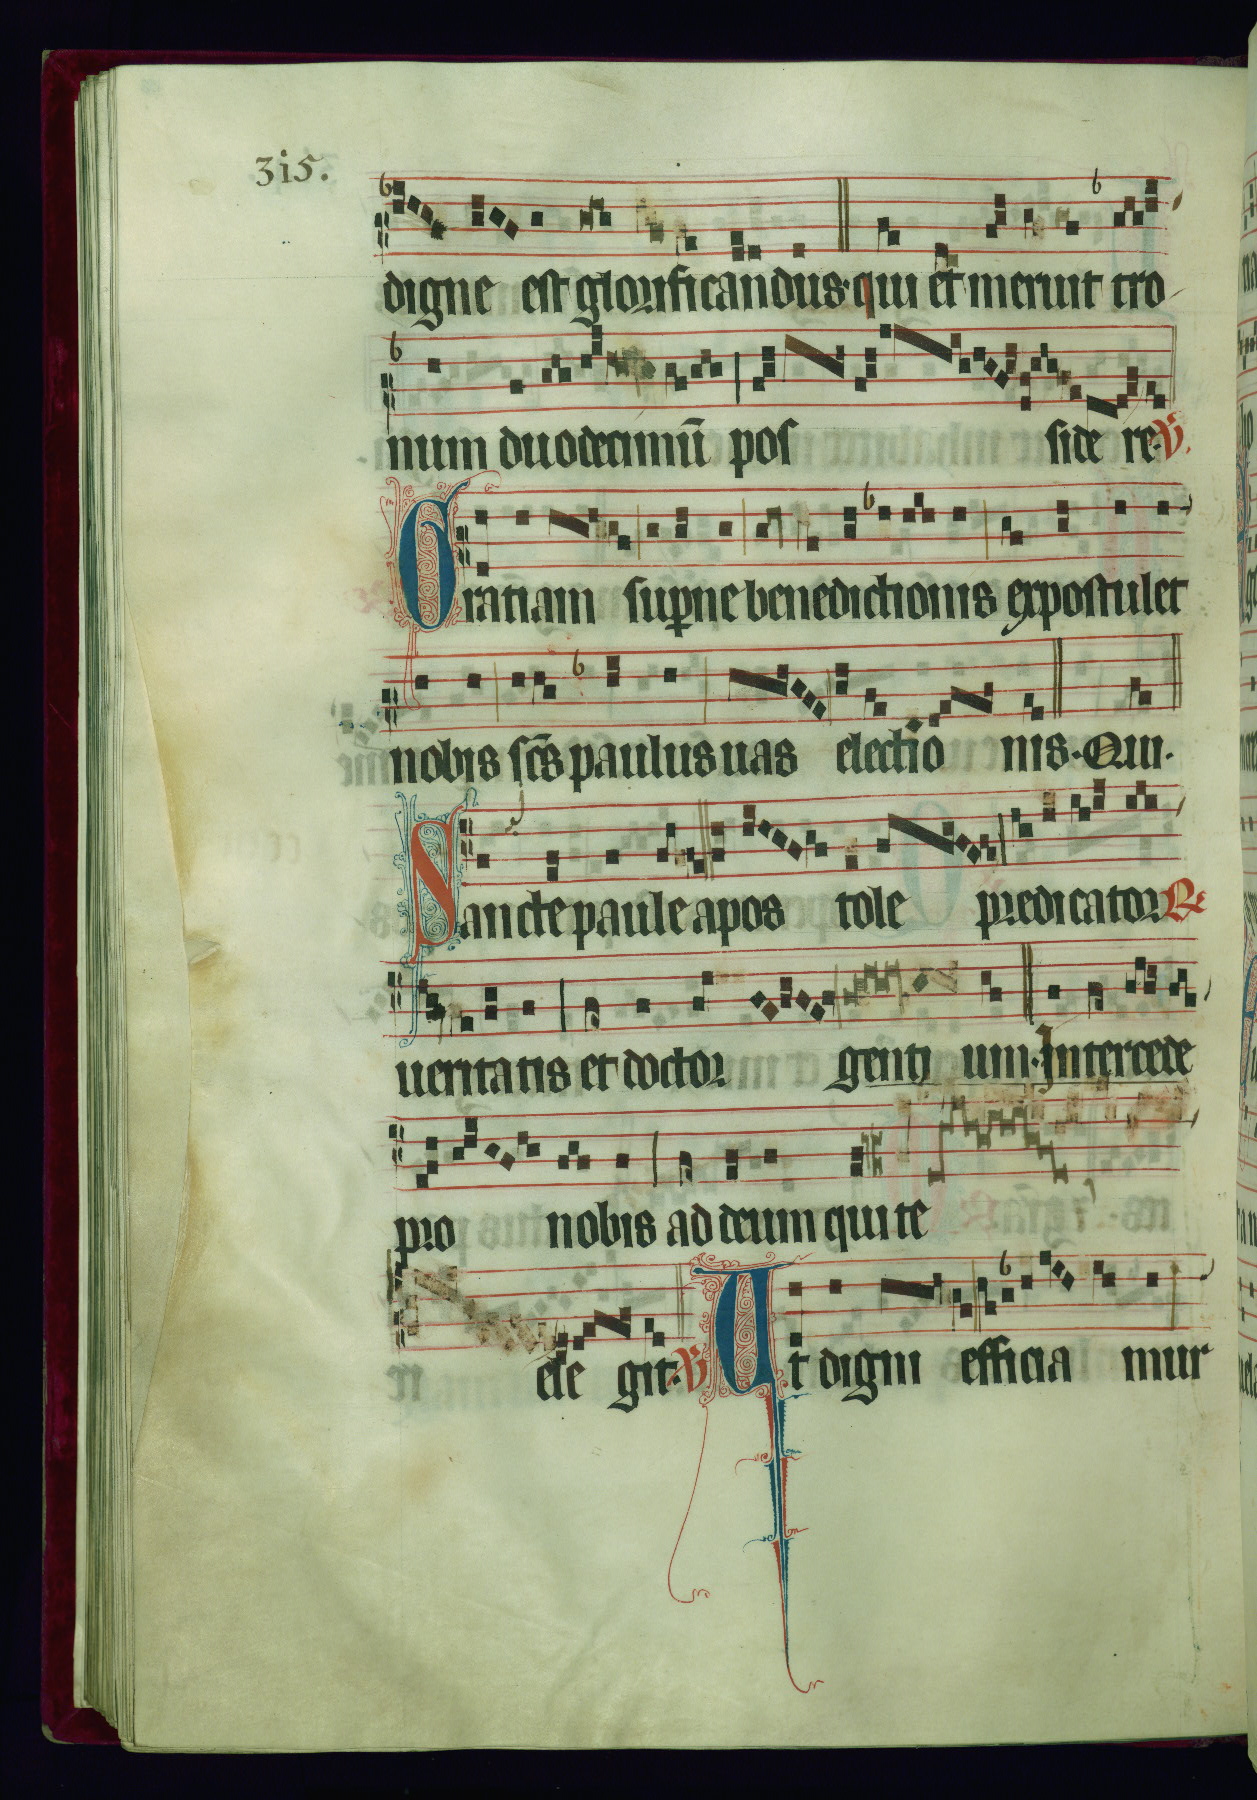 3i5.
digne est glorificandus·qui et meruit tro
num duodecimū pos side re·℣.
Gratiam suꝑne benedictionis expostulet
nobis scs paulus uas electio nis·Qui·
Sancte paule apos tole predicator ℟
ueritatis et doctor genti um·Intercede
pro nobis ad deum qui te
ele git·℣ Ut digni efficia mur